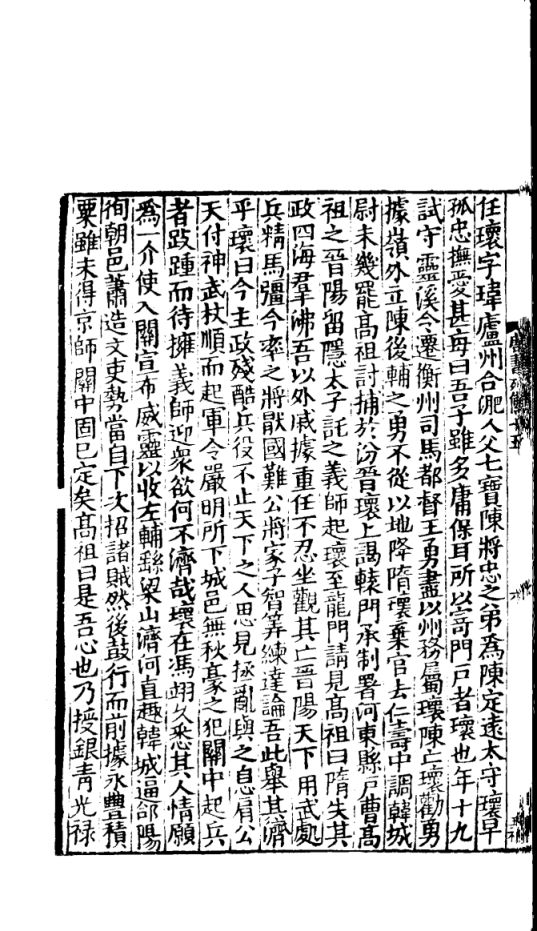 任瓌字瑋廬州合淝人父七寶陳將忠之弟爲陳定遠太守瓌早
孤忠撫愛甚每曰吾子雖多庸保耳所以寄門戶者瓌也年十九
試守靈溪令遷衡州司馬都督王勇盡以州務屬瓌陳亡瓌勸勇
據嶺外立陳後輔之勇不從以地降隋瓌棄官去仁壽中調韓城
尉未幾罷高祖討捕於汾晉瓌上謁轅門承制署河東縣戶曹高
祖之晉陽留隱太子託之義師起瓌至龍門請見高祖曰隋失其
政四海羣沸吾以外戚據重任不忍坐觀其亡晉陽天下用武處
兵精馬彊今率之將猒國難公將家子智筭練達論吾此舉其濟
乎瓌曰今主政殘酷兵役不止天下之人思見拯亂與之息肩公
天付神武杖順而起軍令嚴明所下城邑無秋豪之犯關中起兵
者跂踵而待擁義師迎衆欲何不濟哉瓌在馮翊久悉其人情願
爲一介使入關宣布威靈以收左輔繇梁山濟河直趣韓城逼郃陽
徇朝邑蕭造文吏勢當自下次招諸賊然後鼓行而前據永豐積
粟雖未得京師關中固已定矣高祖曰是吾心也乃授銀青光祿